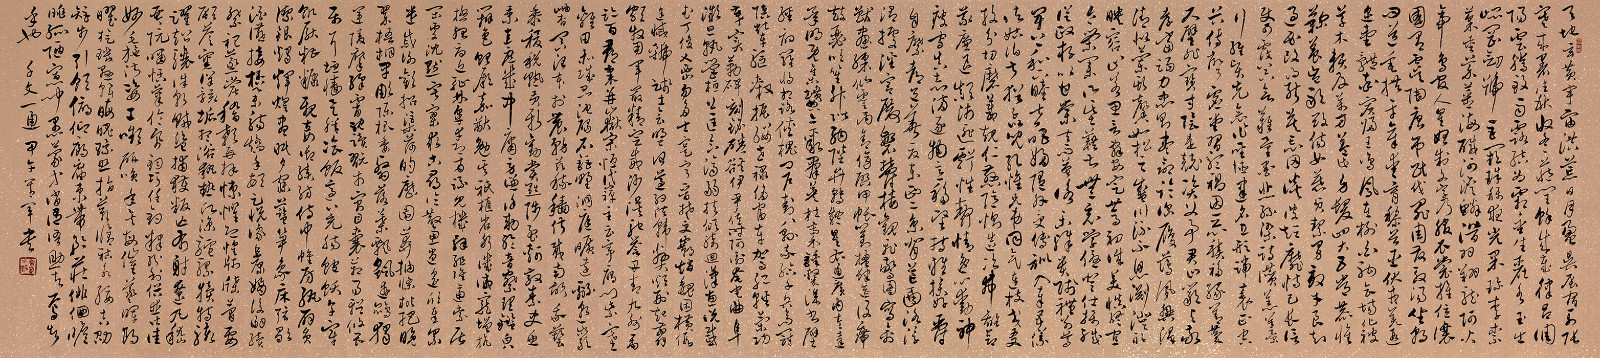 天地玄黃宇宙洪荒日月盈昃辰宿列張
寒來暑往秋收冬藏閏餘成歲律呂調
陽雲騰致雨露結為霜金生麗水玉出
崑岡劍號巨闕珠稱夜光果珍李柰
菜重芥薑海鹹河淡鱗潛羽翔龍師火
帝鳥官人皇始制文字乃服衣裳推位讓
國有虞陶唐弔民伐罪周發殷湯坐朝
問道垂拱平章愛育黎首臣伏戎羌遐
邇壹體率賓歸王鳴鳳在樹白駒食場化被
草木賴及萬方蓋此身髮四大五常恭惟
鞠養豈敢毀傷女慕貞潔男效才良知
過必改得能莫忘罔談彼短靡恃己長信
使可覆器欲難量墨悲絲染詩讚羔羊
景行維賢克念作聖德建名立形端表正空
谷傳聲虛堂習聽禍因惡積福緣善慶
尺璧非寶寸陰是競資父事君曰嚴與敬
孝當竭力忠則盡命臨深履薄夙興溫
凊似蘭斯馨如松之盛川流不息淵澄取
映容止若思言辭安定篤初誠美慎終宜
令榮業所基籍甚無竟學優登仕攝職
從政存以甘棠去而益詠樂殊貴賤禮別尊
卑上和下睦夫唱婦隨外受傅訓入奉母儀
諸姑伯叔猶子比兒孔懷兄弟同氣連枝交
友投分切磨箴規仁慈隱惻造次弗離節
義廉退顛沛匪虧性靜情逸心動神
疲守真志滿逐物意移堅持雅操好爵
自縻都邑華夏東西二京背邙面洛浮
渭據涇宮殿盤鬱樓觀飛驚圖寫禽
獸畫彩仙靈丙舍傍啟甲帳對楹肆筵設席
鼓瑟吹笙升階納陛弁轉疑星右通廣內左達
承明既集墳典亦聚群英杜稿鍾隸漆書壁
經府羅將相路俠槐卿戶封八縣家給千兵高冠
陪輦驅轂振纓世祿侈富車駕肥輕策功
茂實勒碑刻銘磻溪伊尹佐時阿衡奄宅曲阜
微旦孰營桓公匡合濟弱扶傾綺迴漢惠說感
武丁俊乂密勿多士寔寧晉楚更霸趙魏困橫假
途滅虢踐土會盟何遵約法韓弊煩刑起翦
頗牧用軍最精宣威沙漠馳譽丹青九州禹
跡百郡秦并嶽宗泰岱禪主云亭雁門紫塞
雞田赤城昆池碣石鉅野洞庭曠遠綿邈
巖岫杳冥治本於農務茲稼穡俶載南畝我藝
黍稷稅熟貢新勸賞黜陟孟軻敦素史魚
秉直庶幾中庸勞謙謹敕聆音察理鑒貌
辨色貽厥嘉猷勉其祗植省躬譏誡寵增抗
極殆辱近恥林皋幸即兩疏見機解組誰逼索居
閑處沉默寂寥求古尋論散慮逍遙欣奏
累遣慼謝歡招渠荷的歷園莽抽條枇杷晚
翠梧桐早凋陳根委翳落葉飄颻遊鵾獨
運凌摩絳霄耽讀翫市寓目囊箱易輶攸畏
屬耳垣牆具膳餐飯適口充腸飽飫烹宰
飢厭糟糠親戚故舊老少異糧妾御績紡侍巾帷房紈扇
圓潔銀燭煒煌晝眠夕寐藍筍象床弦歌
酒讌接杯舉觴矯手頓足悅豫且康嫡後嗣續
祭祀蒸嘗稽顙再拜悚懼恐惶箋牒簡要
顧答審詳骸垢想浴執熱願涼驢騾犢特駭
躍超驤誅斬賊盜捕獲叛亡布射僚丸嵇
琴阮嘯恬筆倫紙鈞巧任釣釋紛利俗並皆佳
妙毛施淑姿工顰妍笑年矢每催曦暉朗
曜璇璣懸斡晦魄環照指薪修祜永綏吉劭
矩步引領俯仰廊廟束帶矜莊徘徊瞻
眺孤陋寡聞愚蒙等誚謂語助者焉哉
乎也 千文一通 甲午